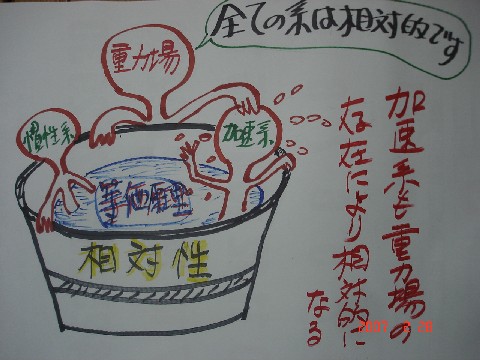 全ての系は相対的です
重力場
慣性系
加速系
等価原理
相対性
加速系も重力場の
存在により相対的に
なる